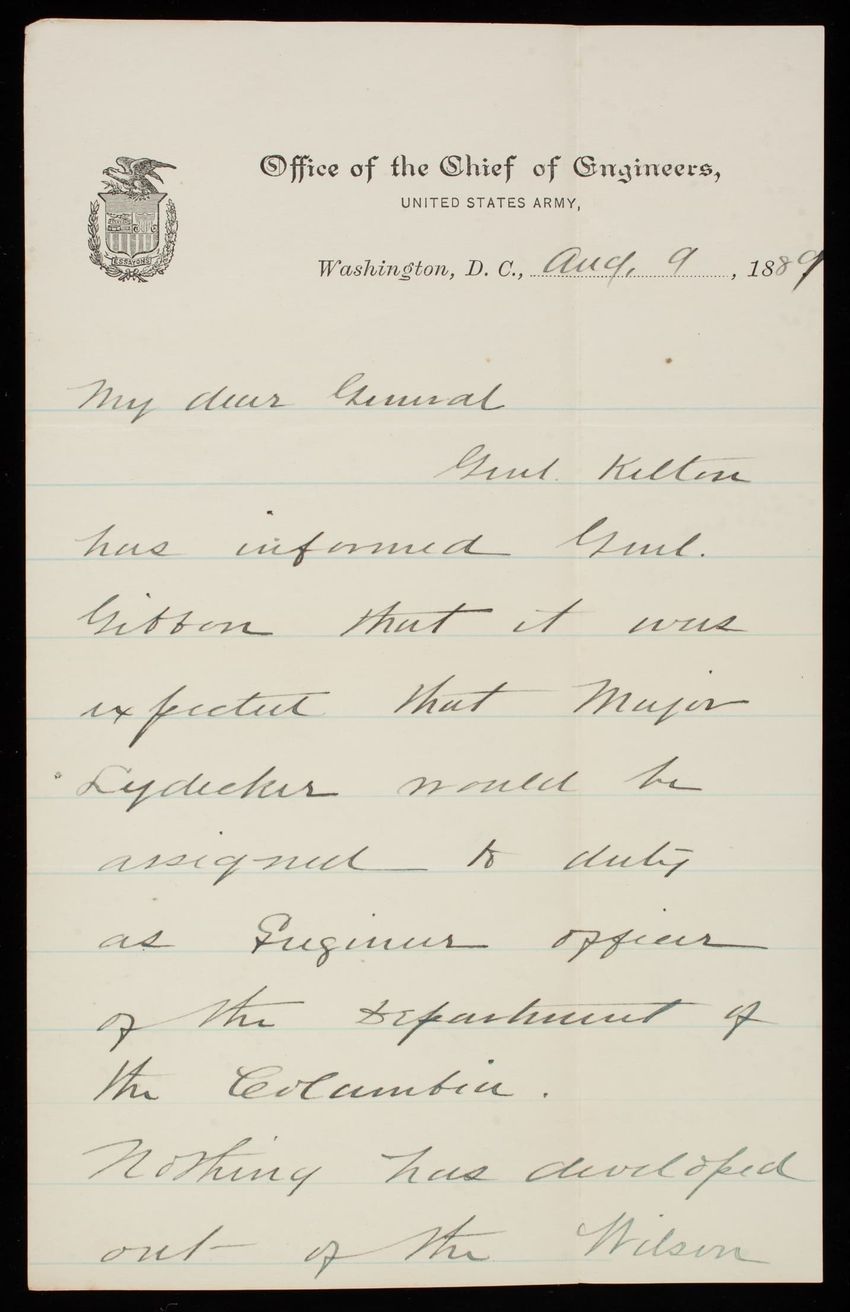 Office of the Chief of Engineers,
UNITED STATES ARMY,
Washington, D. C., Aug. 9, 1889
ESSAYONS
My dear General
Genl. Kelton
has informed Genl.
Gibbon that it was
expected that Major
Lydecker would be
assigned to duty
as Engineer officer
of the Department of
the Columbia.
Nothing has developed
out of the Wilson